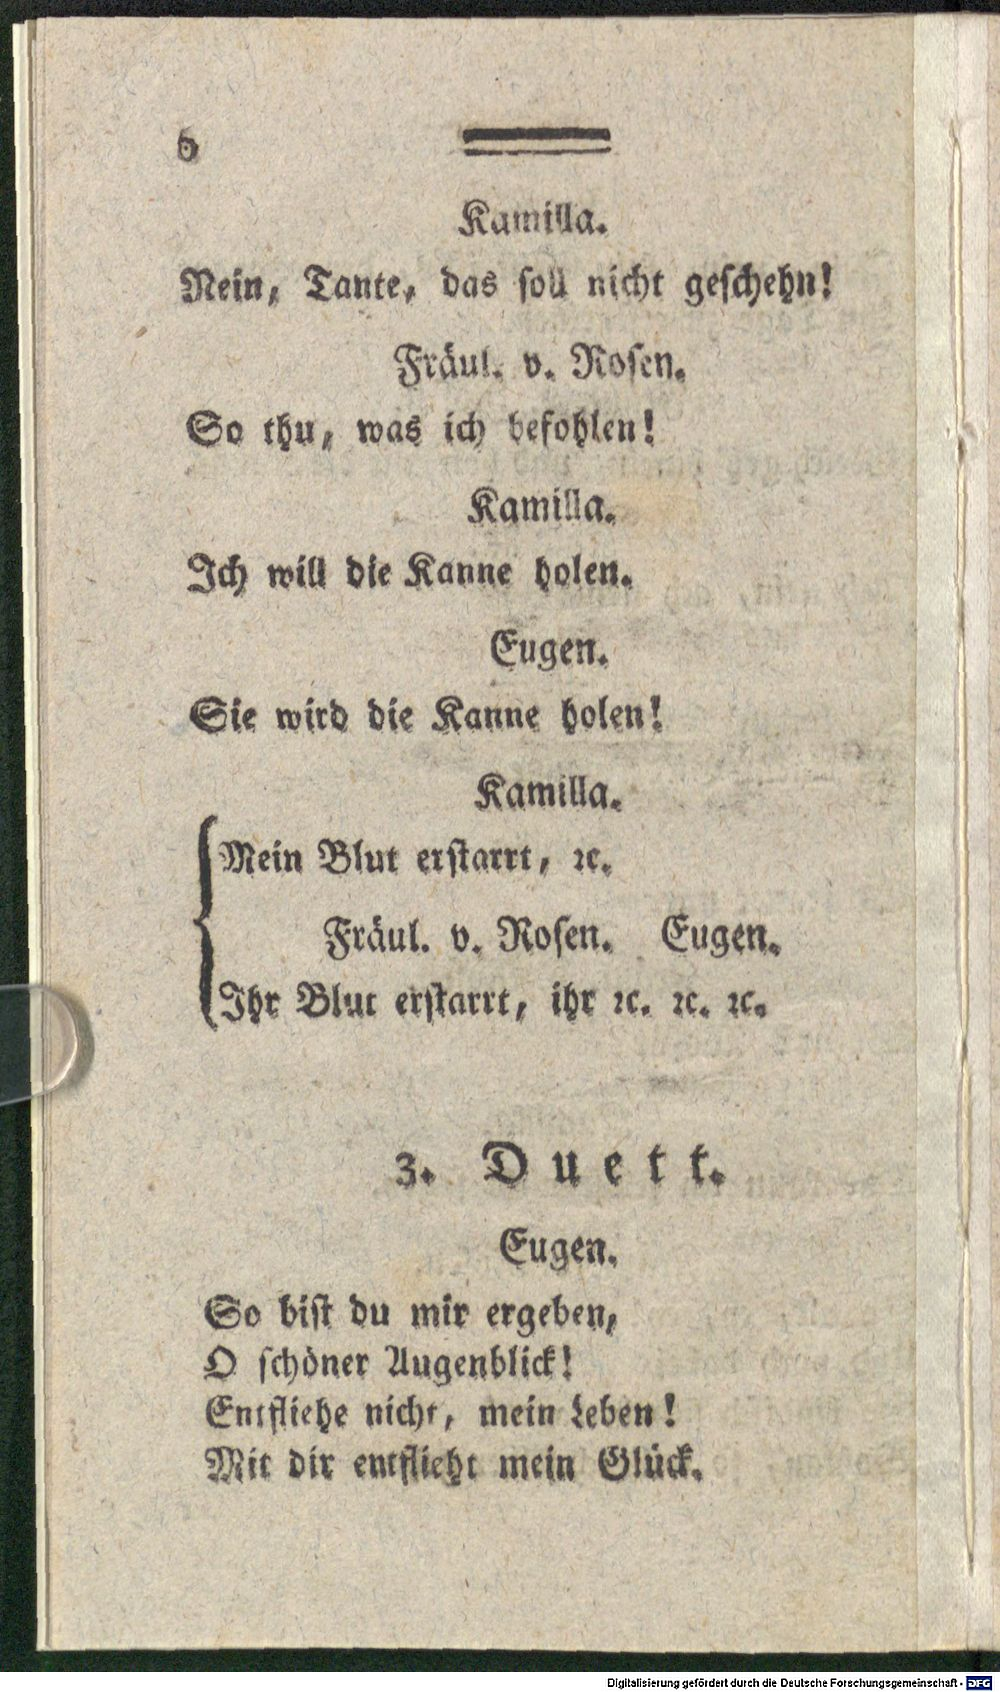 6
Kamilla.
Nein, Tante, das soll nicht geschehn!
Fräul. v. Rosen.
So thu, was ich befohlen!
Kamilla.
Ich will die Kanne holen.
Eugen.
Sie wird die Kanne holen!
Kamilla.
Mein Blut erstarrt, ꝛc.
Fräul. v. Rosen. Eugen.
Ihr Blut erstarrt, ihr ꝛc. ꝛc. ꝛc.
3. Duett.
Eugen.
So bist du mir ergeben,
O schöner Augenblick!
Entfliehe nicht, mein Leben!
Mit dir entflieht mein Glück.
Digitalisierung gefördert durch die Deutsche Forschungsgemeinschaft - DFG